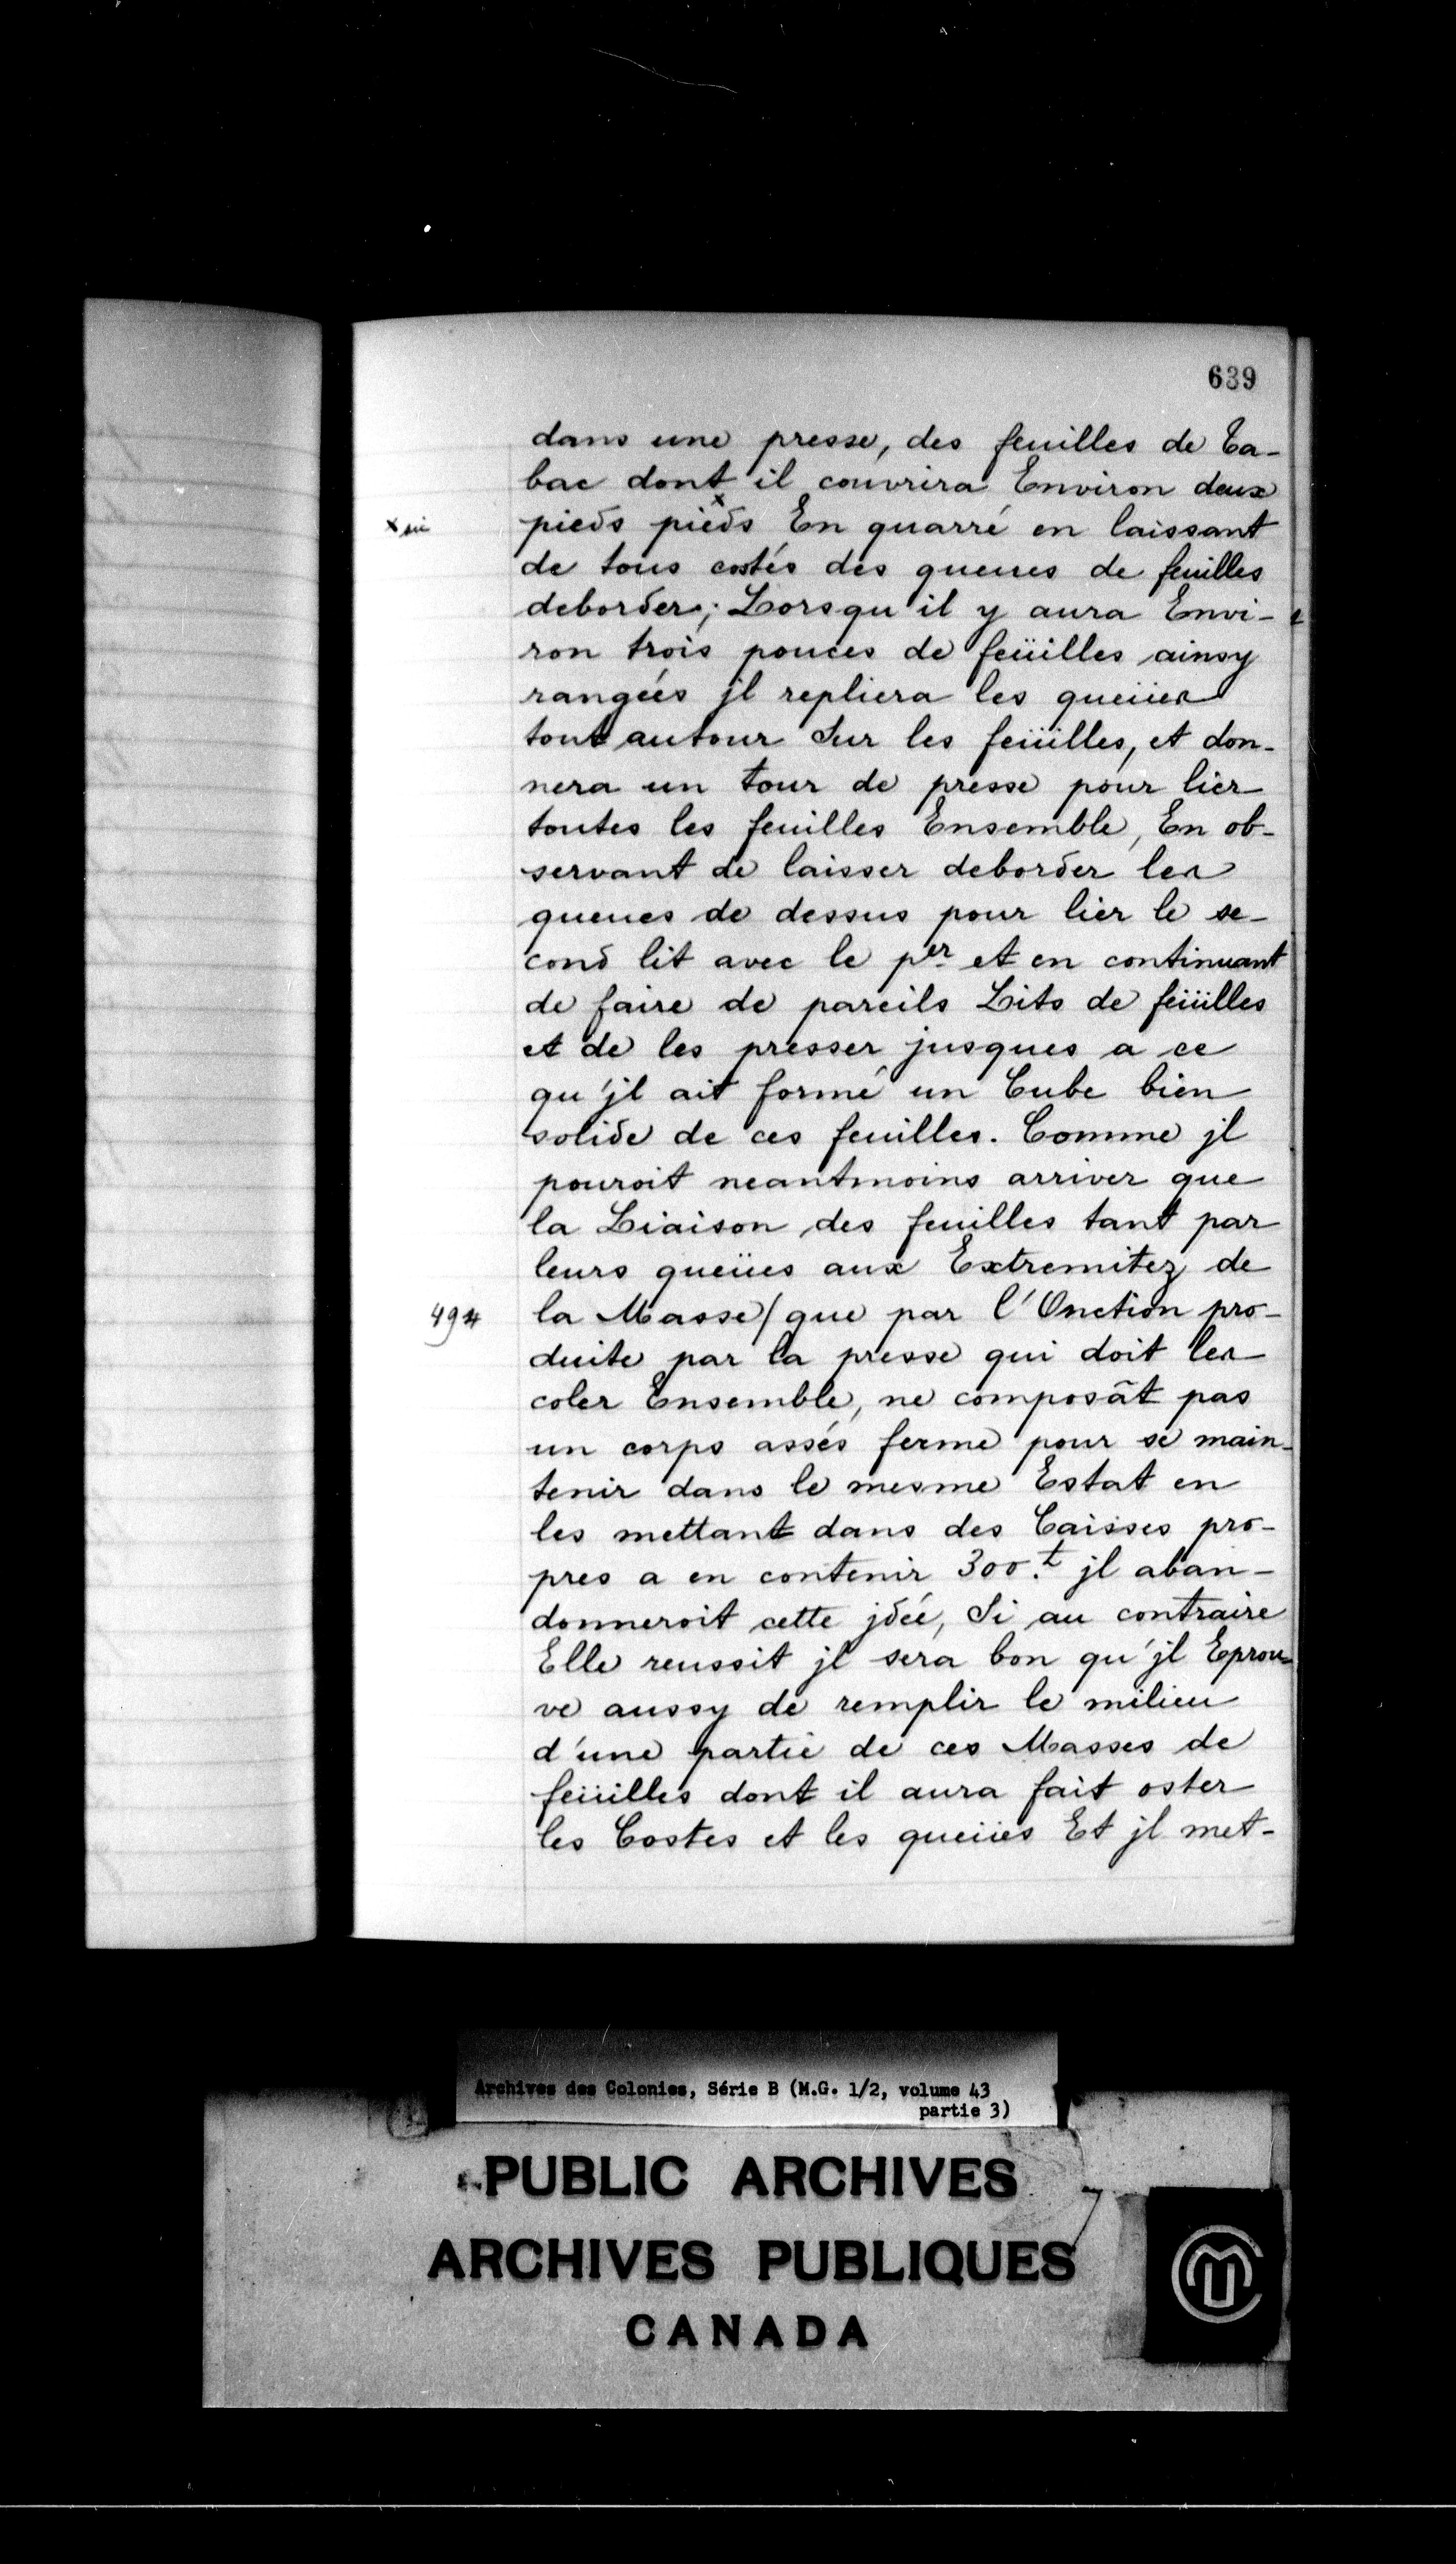 639
dans une presse, des feuilles de Ta-
bac dont il couvrira Environ deux
x sic
pieds pieds x En quarré en laissant
de tous costés des queues de feuilles
deborder; Lorsqu'il y aura Envi-
ron trois pouces de feüilles ainsy
rangées jl repliera les queües
tout autour Sur les feüilles, et don-
nera un tour de presse pour lier
toutes les feuilles Ensemble, En ob-
servant de laisser deborder les
queues de dessus pour lier le se-
cond lit avec le per et en continuant
de faire de pareils Lits de feüilles
et de les presser jusques a ce
qu'jl ait formé un Cube bien
solide de ces feuilles. Comme jl
pouroit neantmoins arriver que
la Liaison des feuilles tant par
leurs queües aux Extremitez de
494
la Masse/ que par l'Onction pro-
duite par la presse qui doit les
coler Ensemble, ne composât pas
un corps assés ferme pour se main-
tenir dans le mesme Estat en
les mettant dans des Caisses pro-
pres a en contenir 300.t jl aban-
donneroit cette jdée, Si au contraire
Elle reussit jl sera bon qu'jl Eprou-
ve aussy de remplir le milieu
d'une partie de ces Masses de
feüilles dont il aura fait oster
les Costes et les queües Et jl met-
Archives des Colonies, Série B (M.G. 1/2, volume 43
partie 3)
PUBLIC ARCHIVES
ARCHIVES PUBLIQUES
CANADA